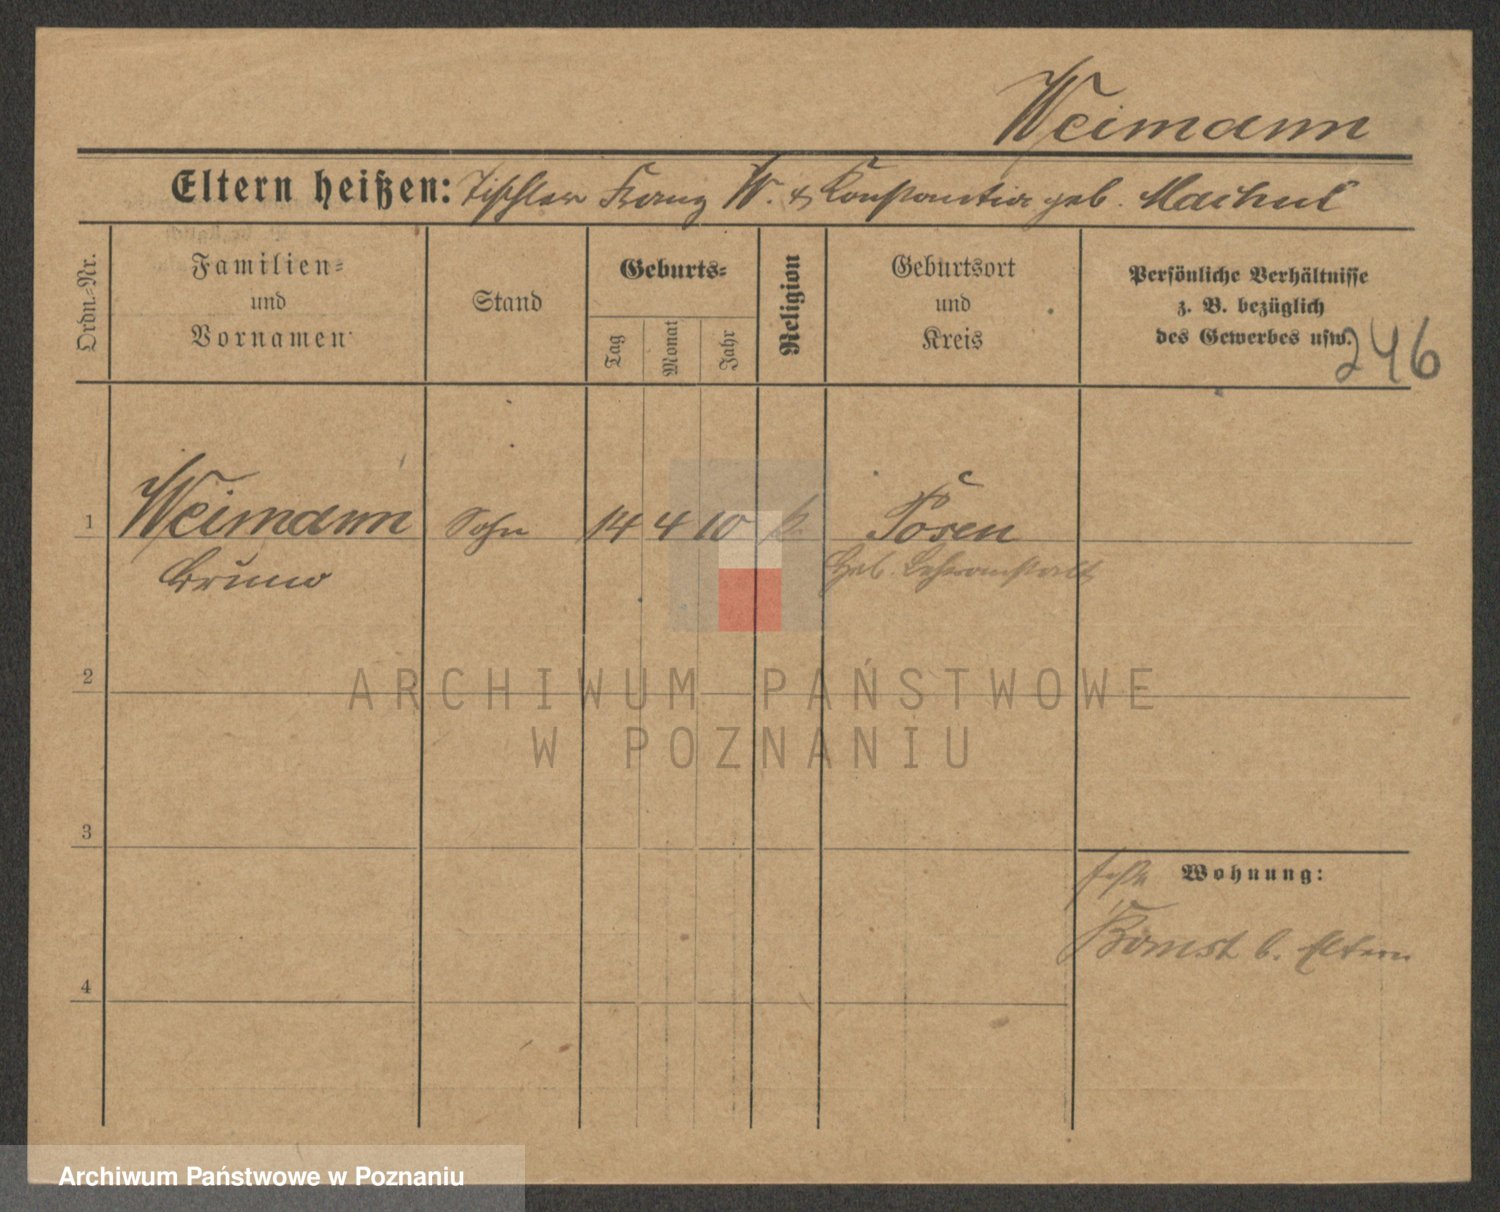 Weimann
Eltern heißen: Tischler Franz W. & Konstantia geb. Machul
Ordn.-Nr.
Familien-
und
Vornamen
Stand
Geburts-
Tag
Monat
Jahr
Religion
Geburtsort
und
Kreis
Persönliche Verhältnisse
z. B. bezüglich
des Gewerbes usw.
246
1 Weimann Sohn 14 4 10 k. Posen
Bruno Heb. Lehranstalt
2
ARCHIWUM PAŃSTWOWE
W POZNANIU
3
Wohnung:
Bomst b. Eltern
4
Archiwum Państwowe w Poznaniu